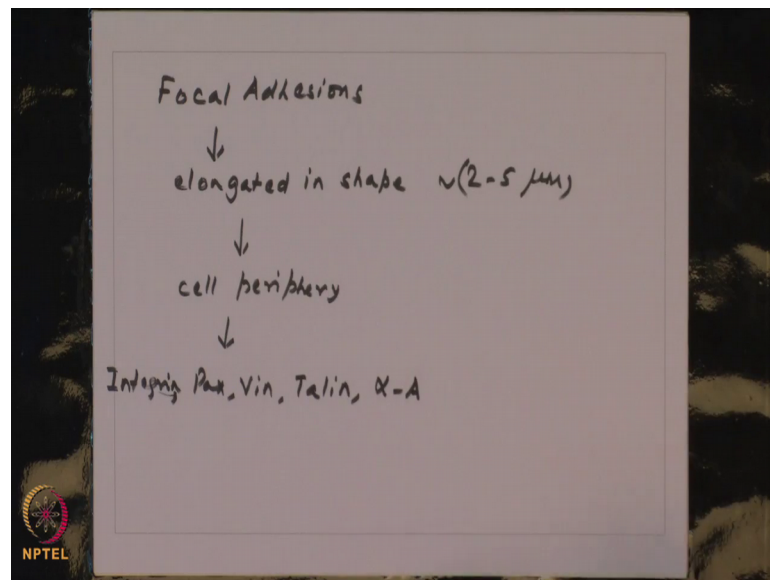 Focal Adhesions
↓
elongated in shape ~(2-5 μm)
↓
cell periphery
↓
Integrin, Pax, Vin, Talin, α-A
NPTEL